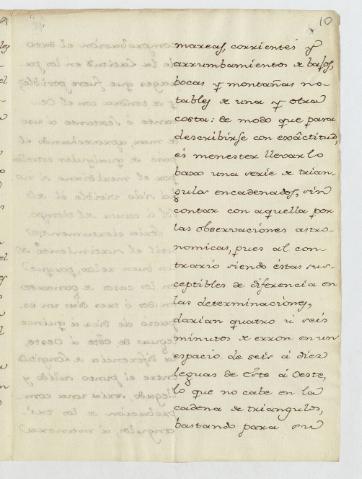 10
mareas, corrientes y
arrumbamientos de bajos,
bocas y montañas no-
tables de una y otra
costa: de modo que para
describirse con exâctitud,
es menester llevarlo
baxo una serie de trian-
gulos encadenados, sin
contar con aquella por
las observaciones astro-
nomicas, pues al con-
trario siendo éstas sus-
ceptibles de diferencia en
las determinaciones,
darian quatro ú seis
minutos de error en un
espacio de seis á diez
leguas de Este á Oeste,
lo que no cabe en la
cadena de triangulos,
bastando para su